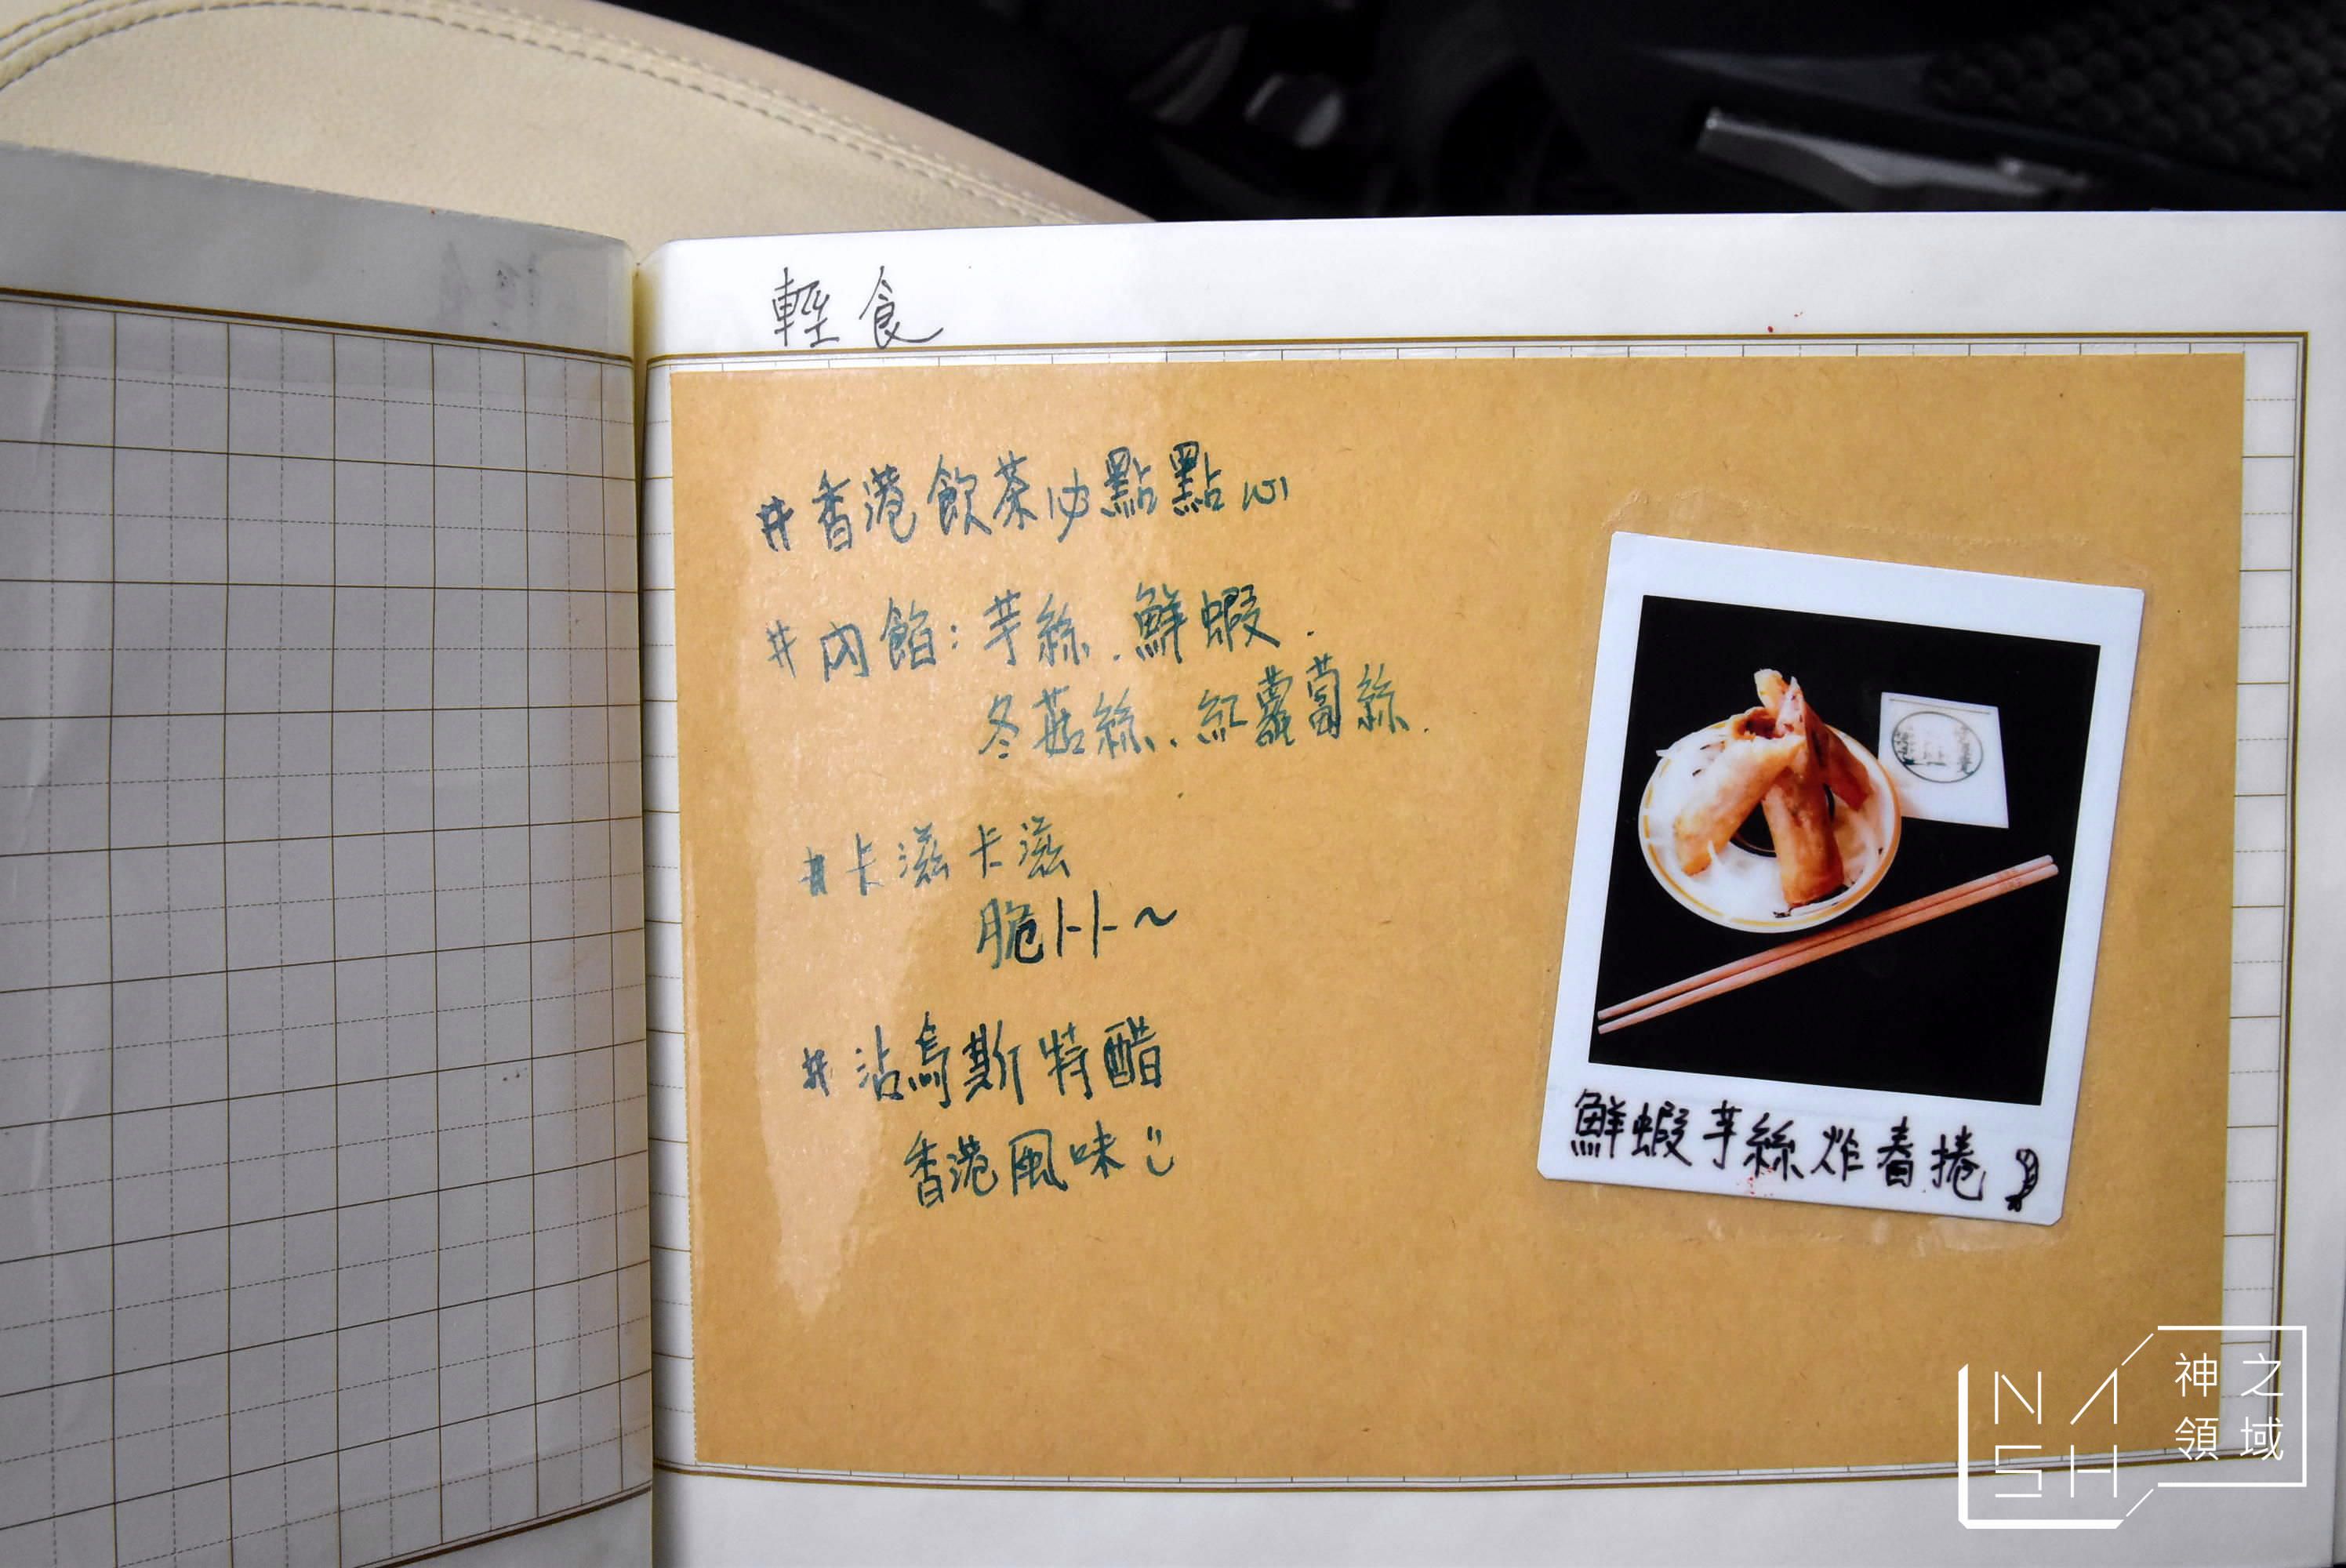 輕食
#香港飲茶必點點心
#內餡:芋絲.鮮蝦.
冬菇絲.紅蘿蔔絲.
#卡滋卡滋
脆卜卜~
#沾烏斯特醋
香港風味
鮮蝦芋絲炸春捲
NASH
神之
領域